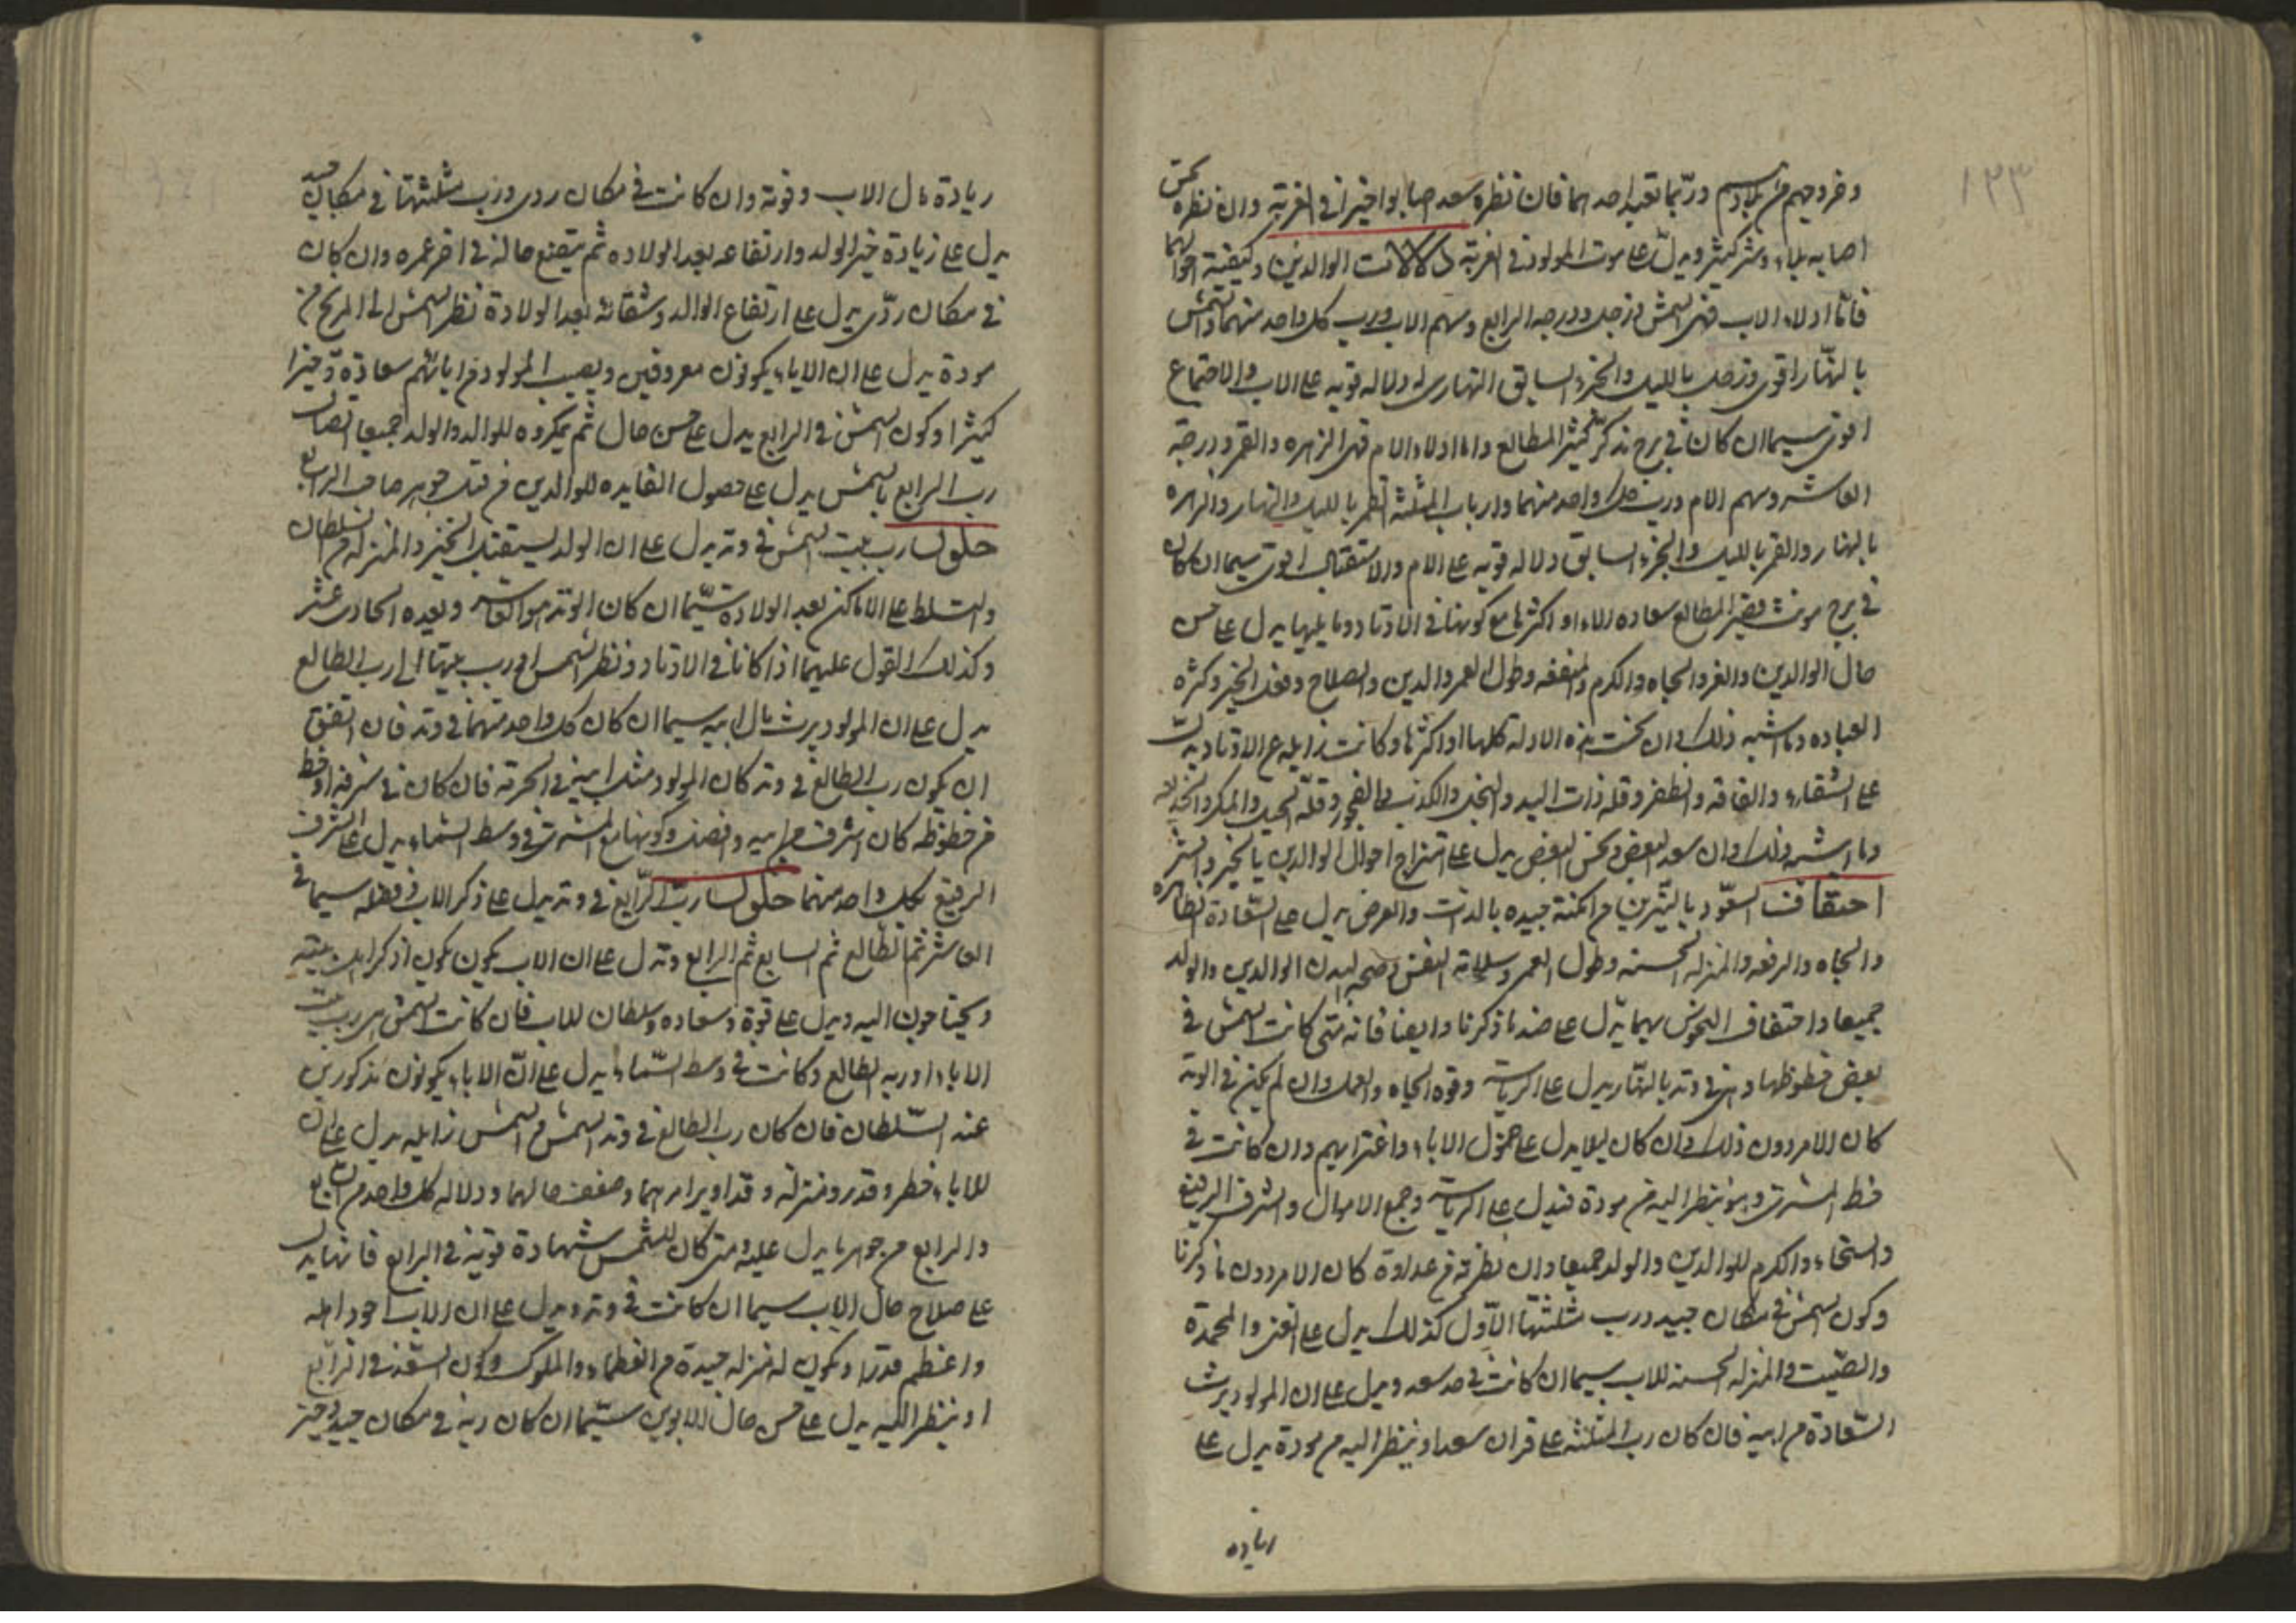 ١٣٣
وخروجهم من بلادهم وربما تغير احدهما فان نظره سعد اصابوا خيرا في الغربة وان نظره نحس
اصابه بلاء وشر كثير ويدل على موت المولود في الغربة دلالات الوالدين وكيفية احوالهما
فاما ادلاء الاب فهي الشمس وزحل ودرجه الرابع وسهم الاب ورب كل واحد منهما والشمس
بالنهار اقوى وزحل بالليل والجزء السابق النهارى له دلاله قويه على الاب والاجتماع
اقوى سيما ان كان في برج مذكر كثير المطالع واما ادلاء الام فهي الزهره والقمر ودرجة
العاشر وسهم الام ورب كل واحد منهما وارباب المثلثة القمر بالليل والنهار والزهره
بالنهار والقمر بالليل والجزء السابق دلاله قويه على الام والاستقبال اقوى سيما ان كان
في برج مونث قصير المطالع سعاده الادلاء او اكثرها مع كونها في الاوتاد وما يليها يدل على حسن
حال الوالدين والعز والجاه والكرم والمنفعه وطول العمر والدين والصلاح وفعل الخير وكثره
العباده وما اشبه ذلك وان نحست هذه الادلة كلها او اكثرها وكانت زايله عن الاوتاد يدلت
على الشقاء والفاقه والظفر وقله ذات اليد والبخل والكذب والفجور وقلة الحيل والمكر والخديعه
وما اشبه ذلك وان سعد البعض ونحس البعض يدل على امتزاج احوال الوالدين بالخير والشر
احتفاف السعود بالنيرين من امكنة جيده بالذات والعرض يدل على السعادة الظاهره
والجاه والرفعه والمنزله الحسنه وطول العمر وسلامة النفس وصحه البدن الوالدين والولد
جميعا واحتفاف النحوس بهما يدل على ضد ما ذكرنا وايضا فانه متى كانت الشمس في
بعض حظوظها وهي في وتد بالنهار يدل على الرياسة وقوه الجاه والعمل وان لم يكن في الوتد
كان الامر دون ذلك وان كان ليلا يدل على خمول الاباء واغترابهم وان كانت في
حظ المشترى وهو ينظر اليه من مودة فيدل على الرياسة وجمع الاموال والشرف الرفيع
والسخاء والكرم للوالدين والولد جميعا وان نظرته من عداوة كان الامر دون ما ذكرنا
وكون الشمس في مكان جيد ورب مثلثتها الاول كذلك يدل على العز والمحمدة
والصيت والمنزله الحسنه للاب سيما ان كانت في حد سعد ويدل على ان المولود يرث
السعادة من ابيه فان كان رب المثلثه على قران سعد او ينظر اليه من مودة يدل على
زياده
زيادة مال الاب وقوته وان كانت في مكان ردى ورب مثلثتها في مكان جيد
يدل على زيادة خير الولد وارتفاعه بعد الولاده ثم يتضع حاله في اخر عمره وان كان
في مكان ردى يدل على ارتفاع الوالد وشقائه بعد الولادة نظر الشمس الى المريخ من
مودة يدل على ان الاباء يكونون معروفين ويصيب المولود من ابائهم سعادة وخيرا
كثيرا وكون الشمس في الرابع يدل على حسن حال ثم يمكروه للوالد والولد جميعا اتصال
رب الرابع بالشمس يدل على حصول الفايده للوالدين من قبل جوهر صاحب الرابع
حلول رب بيت الشمس في وتد يدل على ان الولد يستقبل الخير والمنزله من السلطان
والتسلط على الاماكن بعد الولادة سيما ان كان الوتد هو العاشر وبعده الحادى عشر
وكذلك القول عليهما اذا كانا في الاوتاد ونظر الشمس او رب بيتها الى رب الطالع
يدل على ان المولود يرث مال ابيه سيما ان كان كل واحد منهما في وتد فان اتفق
ان يكون رب الطالع في وتد كان المولود مثل ابيه في الحرية فان كان في شرفه او حظ
من حظوظه كان اشرف من ابيه وافضل وكونها مع المشترى في وسط السماء يدل على الشرف
الرفيع لكل واحد منهما حلول رب الرابع في وتد يدل على ذكر الاب وفضله سيما في
العاشر ثم الطالع ثم السابع ثم الرابع وتدل على ان الاب يكون يكون اذكر اهل بيته
ويحتاجون اليه ويدل على قوة وسعاده وسلطان للاب فان كانت الشمس هي رب بيت
الاباء او ربه الطالع وكانت في وسط السماء يدل على ان الاباء يكونون مذكورين
عند السلطان فان كان رب الطالع في وتد الشمس والشمس زايله يدل على ان
للاباء خطر وقدر ومنزله وقد ادبر امرهما وضعف حالهما ودلاله كل واحد من السابع
والرابع من جوهرها يدل عليه ومتى كان للشمس شهادة قوية في الرابع فانها يدل
على صلاح حال الاب سيما ان كانت في وتد ويدل على ان الاب اجود اهله
واعظم قدرا ويكون له منزله جيدة من العظماء والملوك وكون السعد في الرابع
او ينظر اليه يدل على حسن حال الابوين سيما ان كان ربه في مكان جيد وحيز